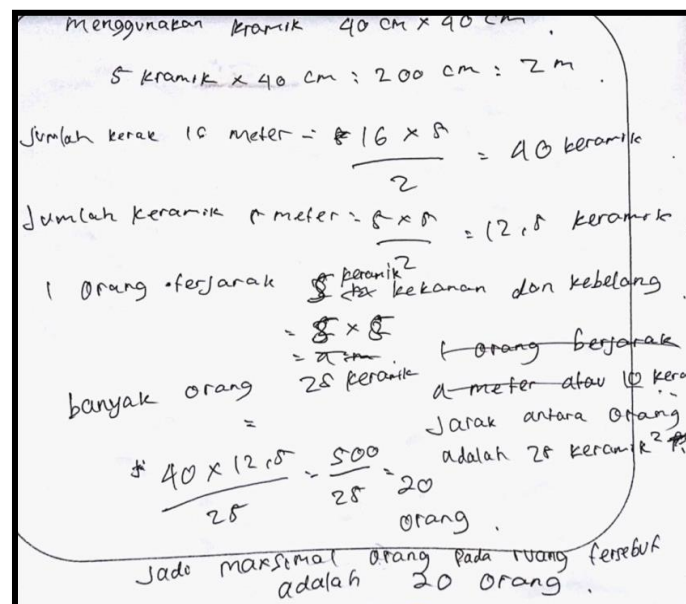 menggunakan kramik 40 cm x 40 cm.
5 kramik x 40 cm : 200 cm : 2 m.
Jumlah kerak 16 meter = 16 x 5 / 2 = 40 keramik
Jumlah keramik 5 meter = 5 x 5 / 2 = 12,5 keramik
1 orang berjarak 5 keramik kekanan dan kebelang
= 5 x 5
25 keramik
1 orang berjarak
meter atau 10 kera
banyak orang =
Jarak antara orang
adalah 25 keramik²
40 x 12,5 / 25 = 500 / 25 = 20 orang.
Jadi maksimal orang pada ruang tersebut
adalah 20 orang.